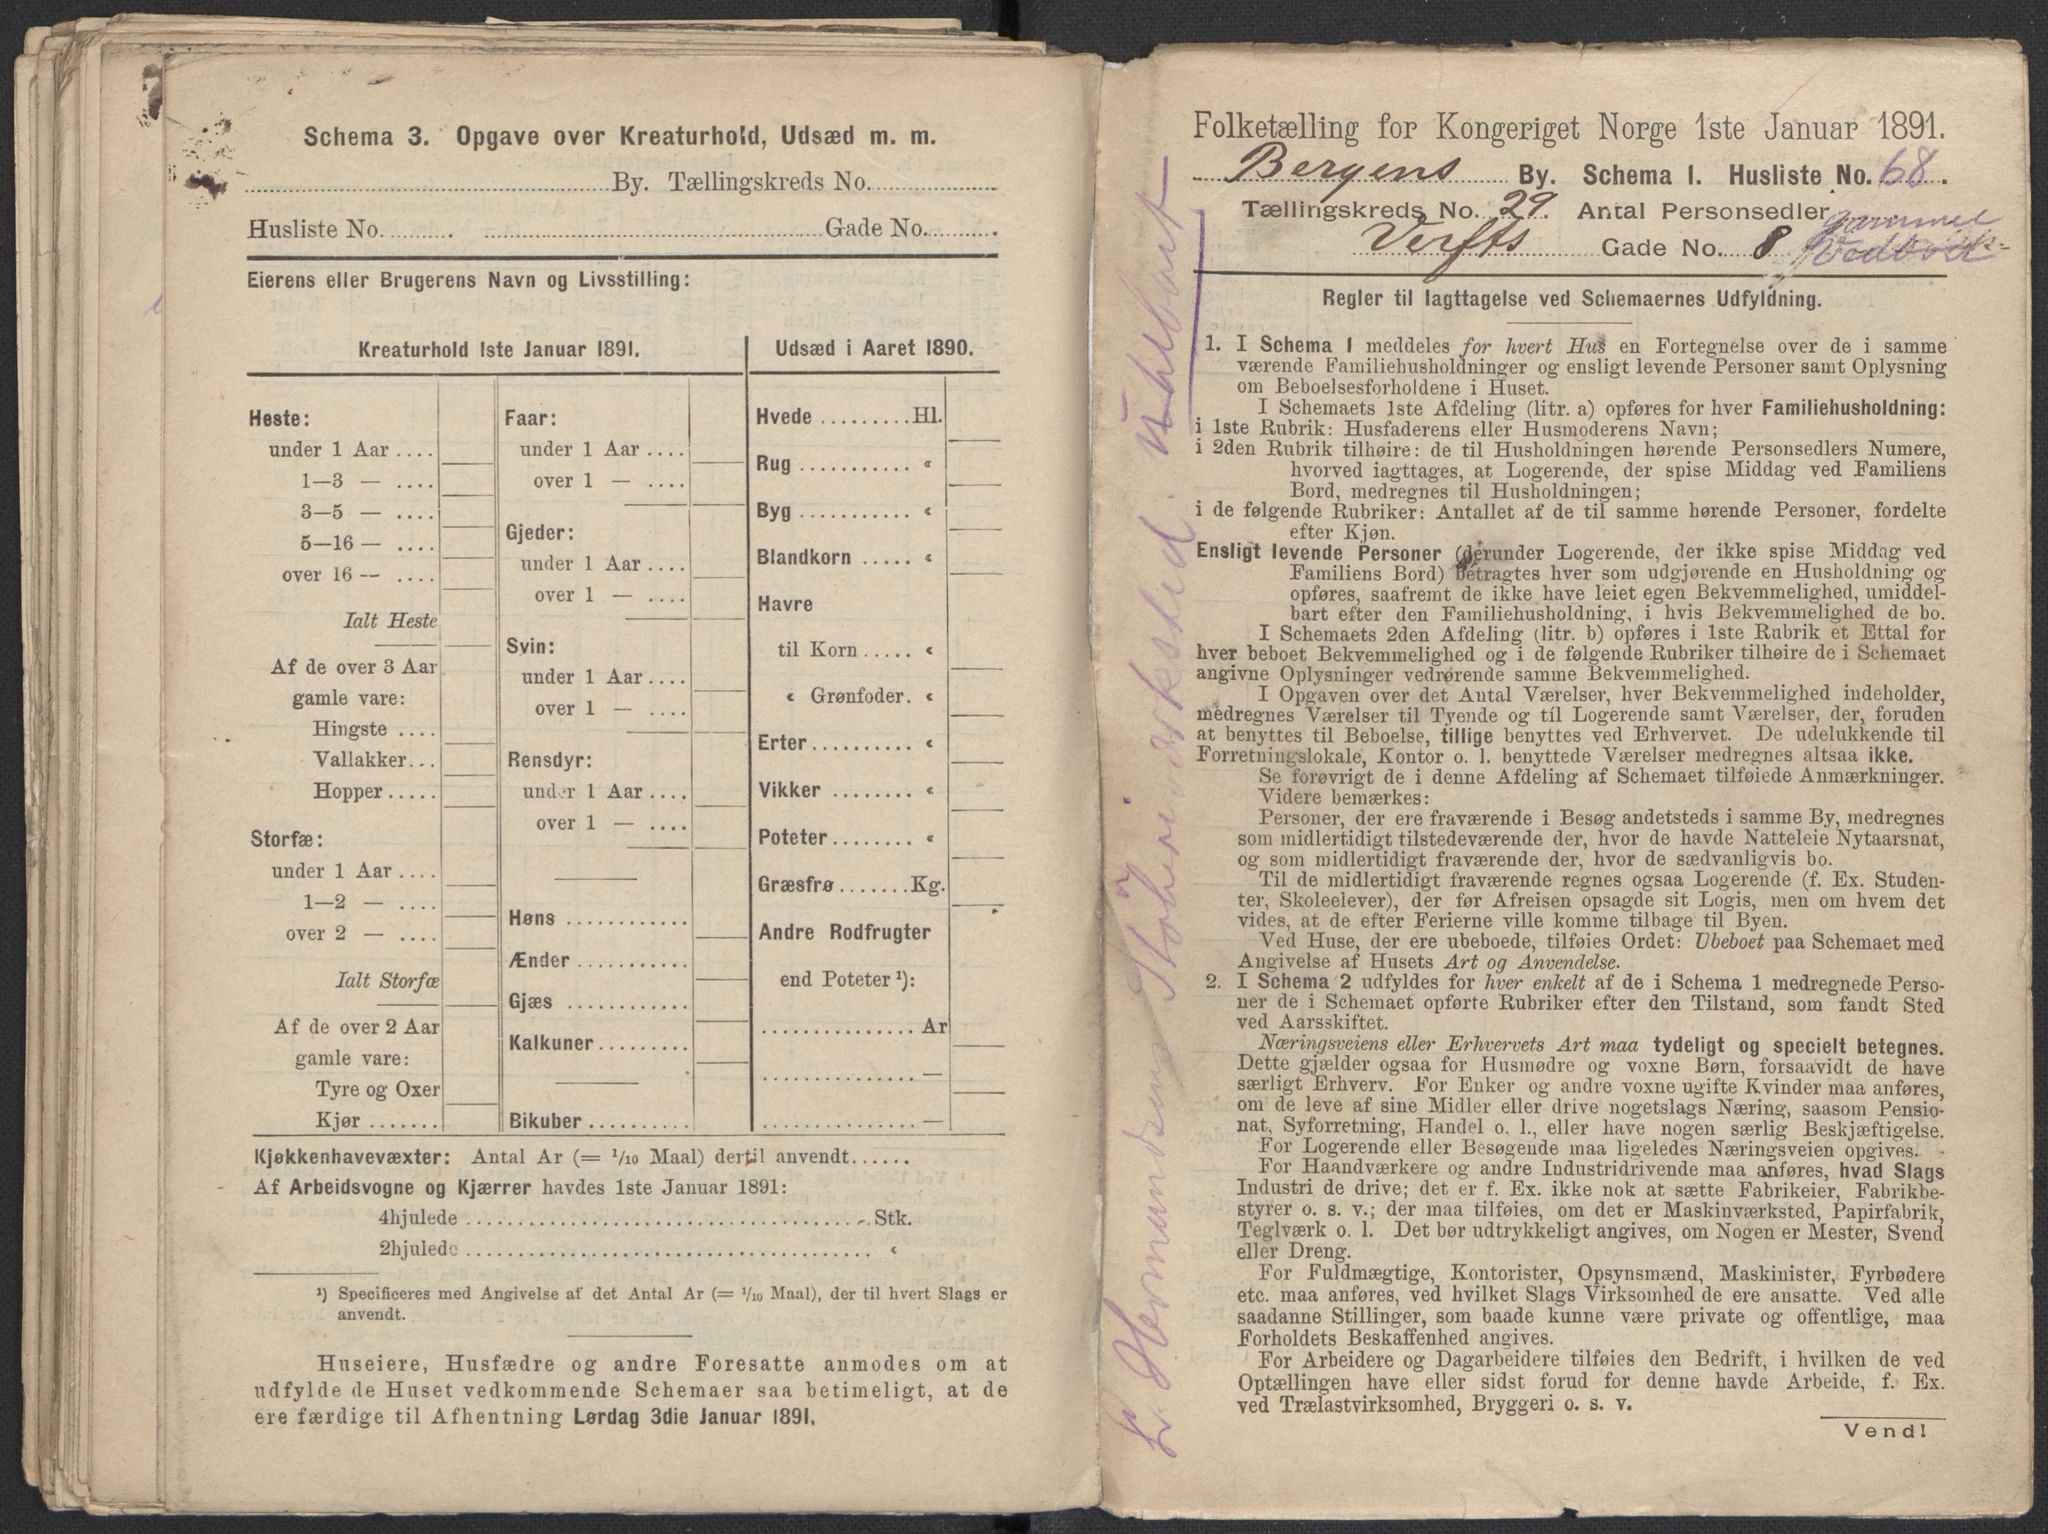 Schema 3. Opgave over Kreaturhold, Udsæd m. m.
By. Tællingskreds No.
Husliste No. Gade No.
Eierens eller Brugerens Navn og Livsstilling:
Kreaturhold 1ste Januar 1891.
Heste:
under 1 Aar
1—3 —
3—5 —
5—16 —
over 16 —
Ialt Heste
Af de over 3 Aar
gamle vare:
Hingste
Vallakker
Hopper
Storfæ:
under 1 Aar
1—2 —
over 2 —
Ialt Storfæ
Af de over 2 Aar
gamle vare:
Tyre og Oxer
Kjør
Faar:
under 1 Aar
over 1 —
Gjeder:
under 1 Aar
over 1 —
Svin:
under 1 Aar
over 1 —
Rensdyr:
under 1 Aar
over 1 —
Høns
Ænder
Gjæs
Kalkuner
Bikuber
Udsæd i Aaret 1890.
Hvede Hl.
Rug «
Byg «
Blandkorn «
Havre
til Korn «
« Grønfoder «
Erter «
Vikker «
Poteter «
Græsfrø Kg.
Andre Rodfrugter
end Poteter ¹):
Ar
—
—
Kjøkkenhavevæxter: Antal Ar (= 1/10 Maal) dertil anvendt
Af Arbeidsvogne og Kjærrer havdes 1ste Januar 1891:
4hjulede Stk.
2hjulede «
¹) Specificeres med Angivelse af det Antal Ar (= 1/10 Maal), der til hvert Slags er
anvendt.
Huseiere, Husfædre og andre Foresatte anmodes om at
udfylde de Huset vedkommende Schemaer saa betimeligt, at de
ere færdige til Afhentning Lørdag 3die Januar 1891.
Folketælling for Kongeriget Norge 1ste Januar 1891.
Bergens By. Schema 1. Husliste No. 68.
Tællingskreds No. 29. Antal Personsedler
Verfts Gade No. 8 gammel
Regler til Iagttagelse ved Schemaernes Udfyldning.
1. I Schema 1 meddeles for hvert Hus en Fortegnelse over de i samme
værende Familiehusholdninger og ensligt levende Personer samt Oplysning
om Beboelsesforholdene i Huset.
I Schemaets 1ste Afdeling (litr. a) opføres for hver Familiehusholdning:
i 1ste Rubrik: Husfaderens eller Husmoderens Navn;
i 2den Rubrik tilhøire: de til Husholdningen hørende Personsedlers Numere,
hvorved iagttages, at Logerende, der spise Middag ved Familiens
Bord, medregnes til Husholdningen;
i de følgende Rubriker: Antallet af de til samme hørende Personer, fordelte
efter Kjøn.
Ensligt levende Personer (derunder Logerende, der ikke spise Middag ved
Familiens Bord) betragtes hver som udgjørende en Husholdning og
opføres, saafremt de ikke have leiet egen Bekvemmelighed, umiddel-
bart efter den Familiehusholdning, i hvis Bekvemmelighed de bo.
I Schemaets 2den Afdeling (litr. b) opføres i 1ste Rubrik et Ettal for
hver beboet Bekvemmelighed og i de følgende Rubriker tilhøire de i Schemaet
angivne Oplysninger vedrørende samme Bekvemmelighed.
I Opgaven over det Antal Værelser, hver Bekvemmelighed indeholder,
medregnes Værelser til Tyende og til Logerende samt Værelser, der, foruden
at benyttes til Beboelse, tillige benyttes ved Erhvervet. De udelukkende til
Forretningslokale, Kontor o. l. benyttede Værelser medregnes altsaa ikke.
Se forøvrigt de i denne Afdeling af Schemaet tilføiede Anmærkninger.
Videre bemærkes:
Personer, der ere fraværende i Besøg andetsteds i samme By, medregnes
som midlertidigt tilstedeværende der, hvor de havde Natteleie Nytaarsnat,
og som midlertidigt fraværende der, hvor de sædvanligvis bo.
Til de midlertidigt fraværende regnes ogsaa Logerende (f. Ex. Studen-
ter, Skoleelever), der før Afreisen opsagde sit Logis, men om hvem det
vides, at de efter Ferierne ville komme tilbage til Byen.
Ved Huse, der ere ubeboede, tilføies Ordet: Ubeboet paa Schemaet med
Angivelse af Husets Art og Anvendelse.
2. I Schema 2 udfyldes for hver enkelt af de i Schema 1 medregnede Perso-
ner de i Schemaet opførte Rubriker efter den Tilstand, som fandt Sted
ved Aarsskiftet.
Næringsveiens eller Erhvervets Art maa tydeligt og specielt betegnes.
Dette gjælder ogsaa for Husmødre og voxne Børn, forsaavidt de have
særligt Erhverv. For Enker og andre voxne ugifte Kvinder maa anføres,
om de leve af sine Midler eller drive nogetslags Næring, saasom Pensio-
nat, Syforretning, Handel o. l., eller have nogen særlig Beskjæftigelse.
For Logerende eller Besøgende maa ligeledes Næringsveien opgives.
For Haandværkere og andre Industridrivende maa anføres, hvad Slags
Industri de drive; det er f. Ex. ikke nok at sætte Fabrikeier, Fabrikbe-
styrer o. s. v.; der maa tilføies, om det er Maskinværksted, Papirfabrik,
Teglværk o. l. Det bør udtrykkeligt angives, om Nogen er Mester, Svend
eller Dreng.
For Fuldmægtige, Kontorister, Opsynsmænd, Maskinister, Fyrbødere
etc. maa anføres, ved hvilket Slags Virksomhed de ere ansatte. Ved alle
saadanne Stillinger, som baade kunne være private og offentlige, maa
Forholdets Beskaffenhed angives.
For Arbeidere og Dagarbeidere tilføies den Bedrift, i hvilken de ved
Optællingen have eller sidst forud for denne havde Arbeide, f. Ex.
ved Trælastvirksomhed, Bryggeri o. s. v.
Vend!
Hermundsens Støberiværksted. Ubeboet